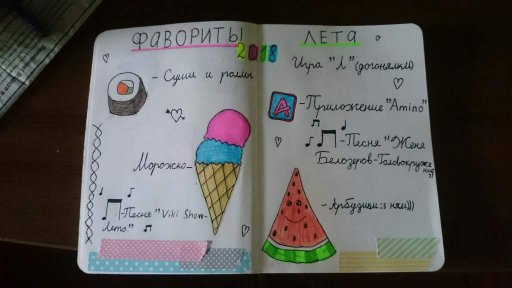 ФАВОРИТЫ
ЛЕТА
2018
- Суши и роллы
Морожко-
-Песня "Viki Show-
Лето"
Игра "Л" (догонялки)
A
-Приложение "Amino"
-Песня "Женя
Белозеров-Головокруже
ния"
-Арбузики:з ням)))